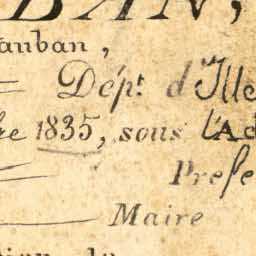 BAN,
auban,
Dépt. d'Ille
re 1835, sous l'Ad
Prefe
Maire